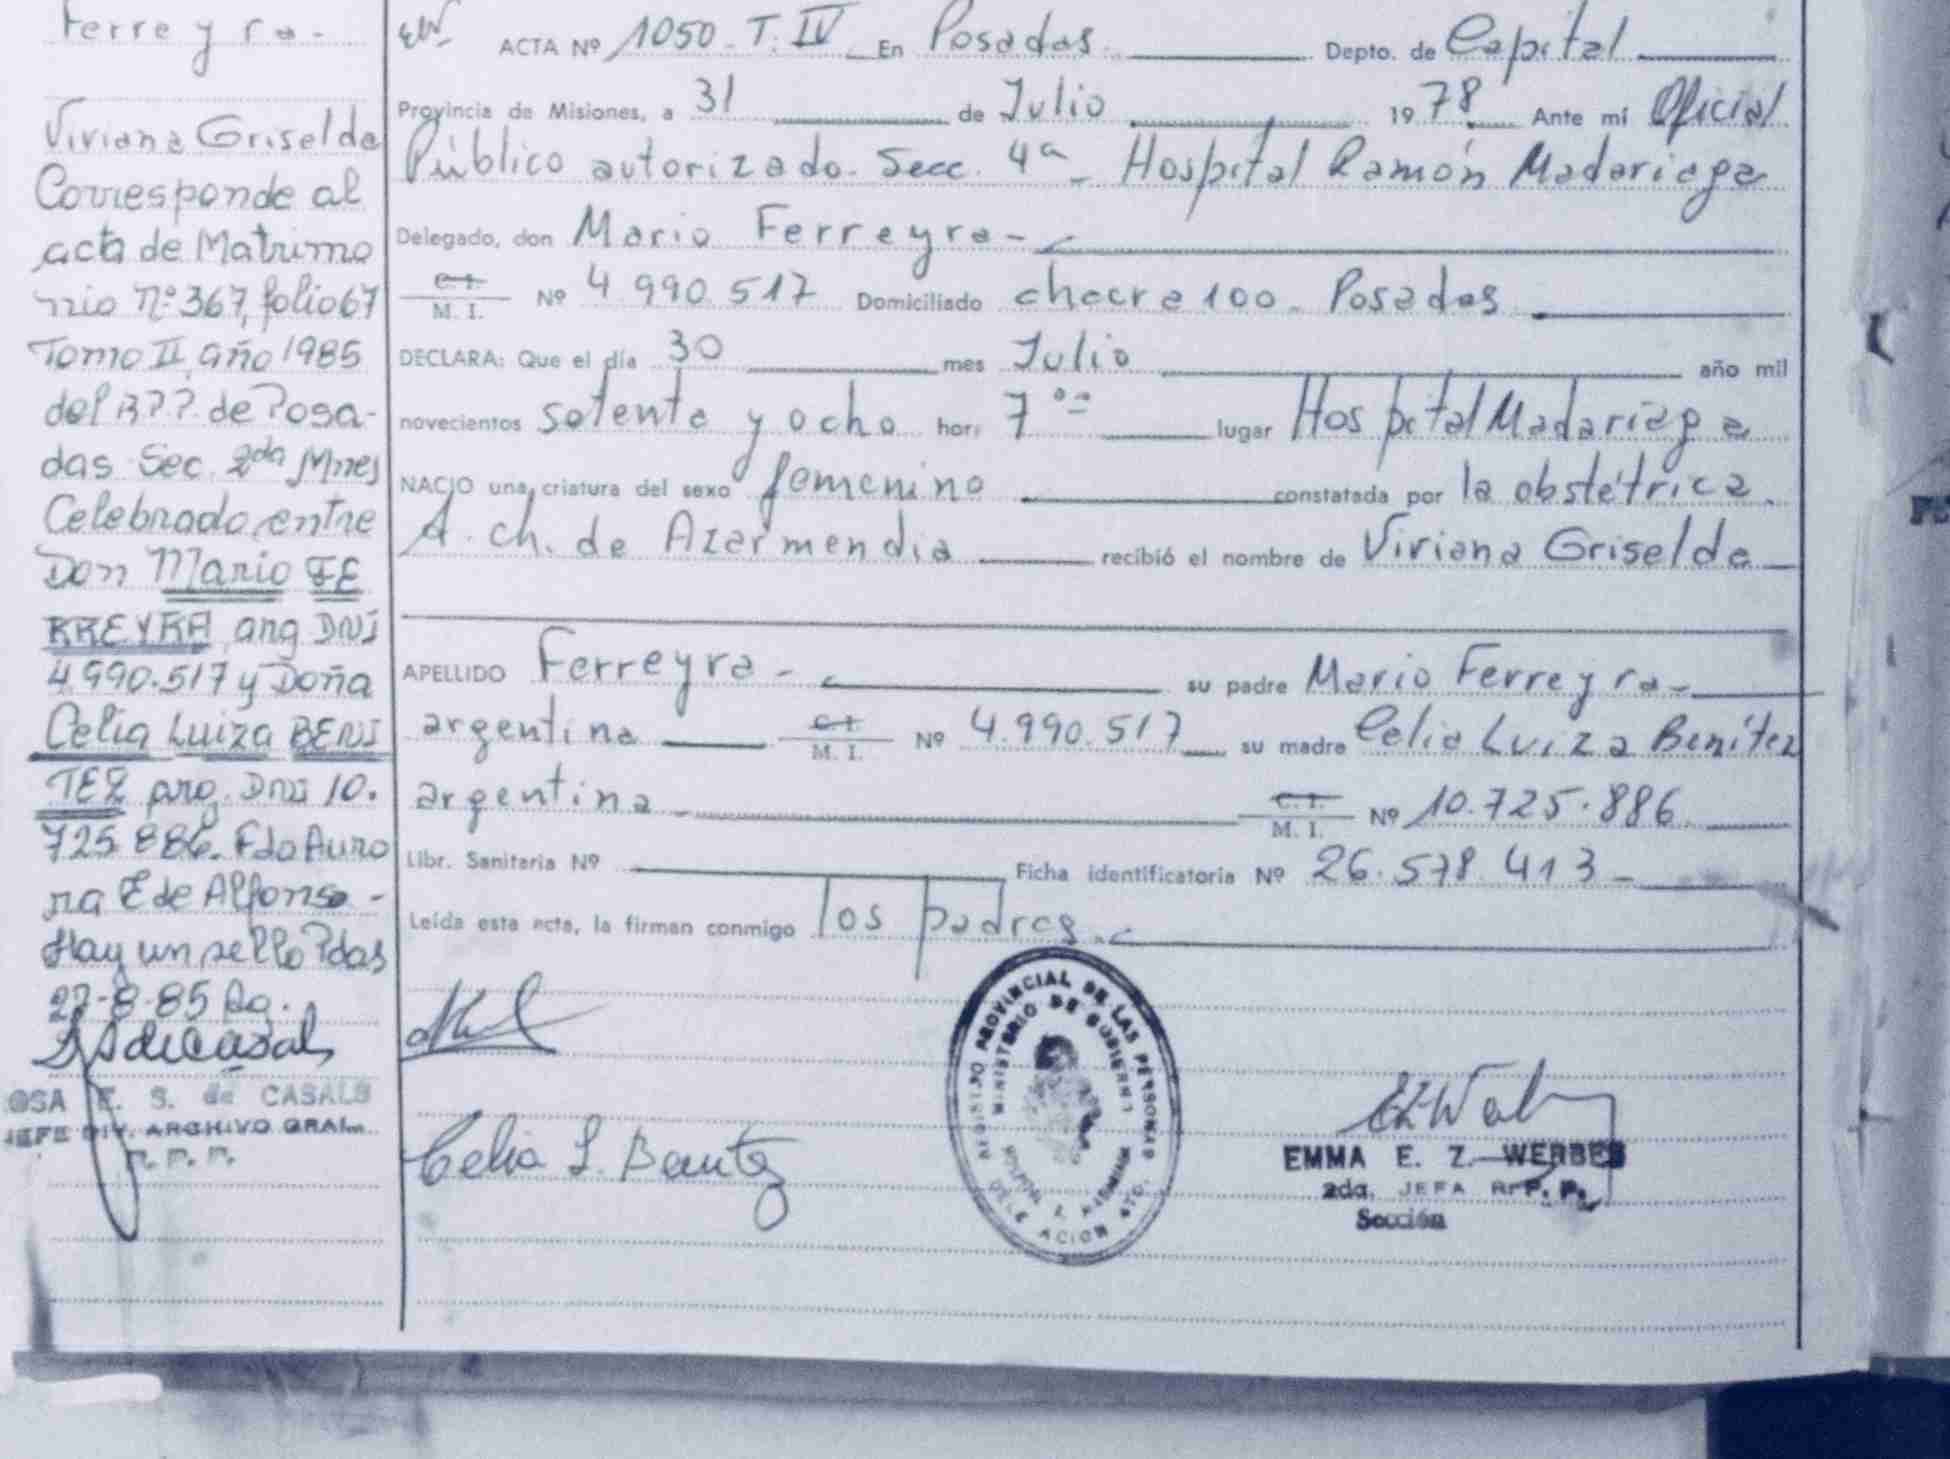 Ferreyra-
Viviana Griselda
Corresponde al
acta de Matrimo
nio Nº 367, folio 67
Tomo II, año 1985
del R.P.P. de Posa-
das Sec. 2da Mnes
Celebrado, entre
Don Mario FE
RREYRA, arg DNI
4.990.517 y Doña
Celia Luiza BENI
TEZ arg. DNI 10.
725.886. Fdo Auro
ra E de Alfonso -
Hay un sello Pdas
27-8-85
OSA E. S. de CASALS
JEFE DIV. ARCHIVO GRAL.
R. P. P.
ACTA Nº 1050. T. IV En Posadas. Depto. de Capital
Provincia de Misiones, a 31 de Julio 1978. Ante mí Oficial
Público autorizado. Secc. 4ª - Hospital Ramón Madariaga
Delegado, don Mario Ferreyra-
C.I. M. I. Nº 4.990.517 Domiciliado chacra 100. Posadas
DECLARA: Que el día 30 mes Julio año mil
novecientos setenta y ocho hora 7 lugar Hospital Madariaga
NACIO una criatura del sexo femenino constatada por la obstétrica.
A. ch. de Azarmendia recibió el nombre de Viviana Griselda
APELLIDO Ferreyra- su padre Mario Ferreyra-
argentina C.I. M. I. Nº 4.990.517 su madre Celia Luiza Benítez
argentina C.I. M. I. Nº 10.725.886
Libr. Sanitaria Nº Ficha identificatoria Nº 26.578.413-
Leída esta acta, la firman conmigo los padres.
REGISTRO PROVINCIAL DE LAS PERSONAS
MINISTERIO DE GOBIERNO
Celia L. Benitez
EMMA E. Z. WERBES
2da. JEFA R. P. P.
Sección